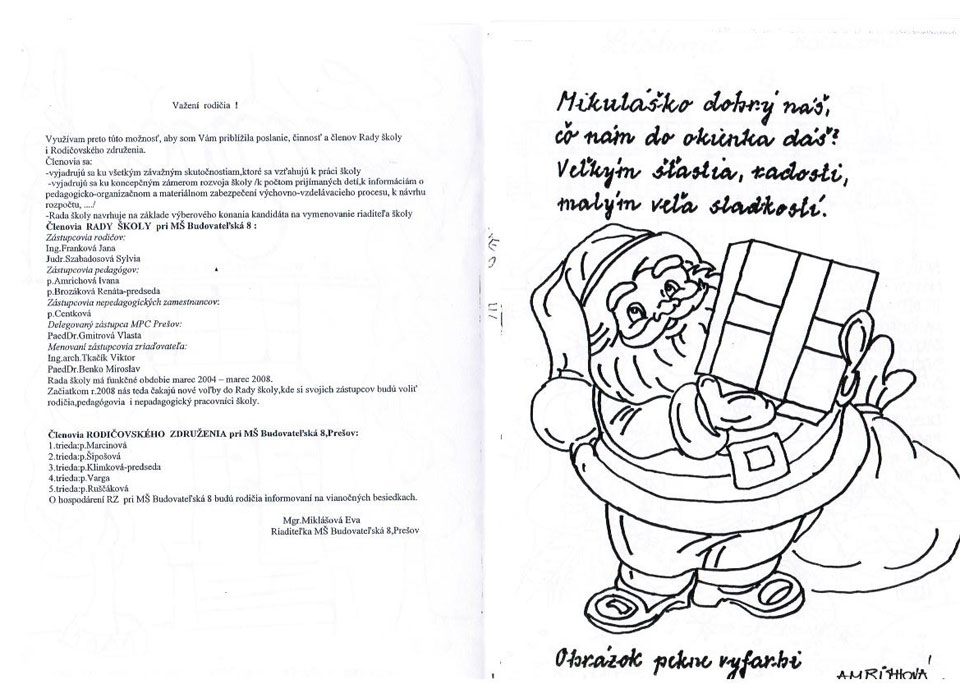 Važení rodičia !
Využívam preto túto možnosť, aby som Vám priblížila poslanie, činnosť a členov Rady školy
i Rodičovského združenia.
Členovia sa:
-vyjadrujú sa ku všetkým závažným skutočnostiam,ktoré sa vzťahujú k práci školy
-vyjadrujú sa ku koncepčným zámerom rozvoja školy /k počtom prijímaných detí,k informáciám o
pedagogicko-organizačnom a materiálnom zabezpečení výchovno-vzdelávacieho procesu, k návrhu
rozpočtu, ..../
-Rada školy navrhuje na základe výberového konania kandidáta na vymenovanie riaditeľa školy
Členovia RADY ŠKOLY pri MŠ Budovateľská 8 :
Zástupcovia rodičov:
Ing.Franková Jana
Judr.Szabadosová Sylvia
Zástupcovia pedagógov:
p.Amrichová Ivana
p.Brozáková Renáta-predseda
Zástupcovia nepedagogických zamestnancov:
p.Centková
Delegovaný zástupca MPC Prešov:
PaedDr.Gmitrová Vlasta
Menovaní zástupcovia zriaďovateľa:
Ing.arch.Tkačík Viktor
PaedDr.Benko Miroslav
Rada školy má funkčné obdobie marec 2004 – marec 2008.
Začiatkom r.2008 nás teda čakajú nové voľby do Rady školy,kde si svojich zástupcov budú voliť
rodičia,pedagógovia i nepedagogický pracovníci školy.
Členovia RODIČOVSKÉHO ZDRUŽENIA pri MŠ Budovateľská 8,Prešov:
1.trieda:p.Marcinová
2.trieda:p.Šipošová
3.trieda:p.Klimková-predseda
4.trieda:p.Varga
5.trieda:p.Ruščáková
O hospodárení RZ pri MŠ Budovateľská 8 budú rodičia informovaní na vianočných besiedkach.
Mgr.Miklášová Eva
Riaditeľka MŠ Budovateľská 8,Prešov
Mikuláško dobrý náš,
čo nám do okienka dáš?
Veľkým šťastia, radosti,
malým veľa sladkostí.
Obrázok pekne vyfarbi
AMRICHOVÁ